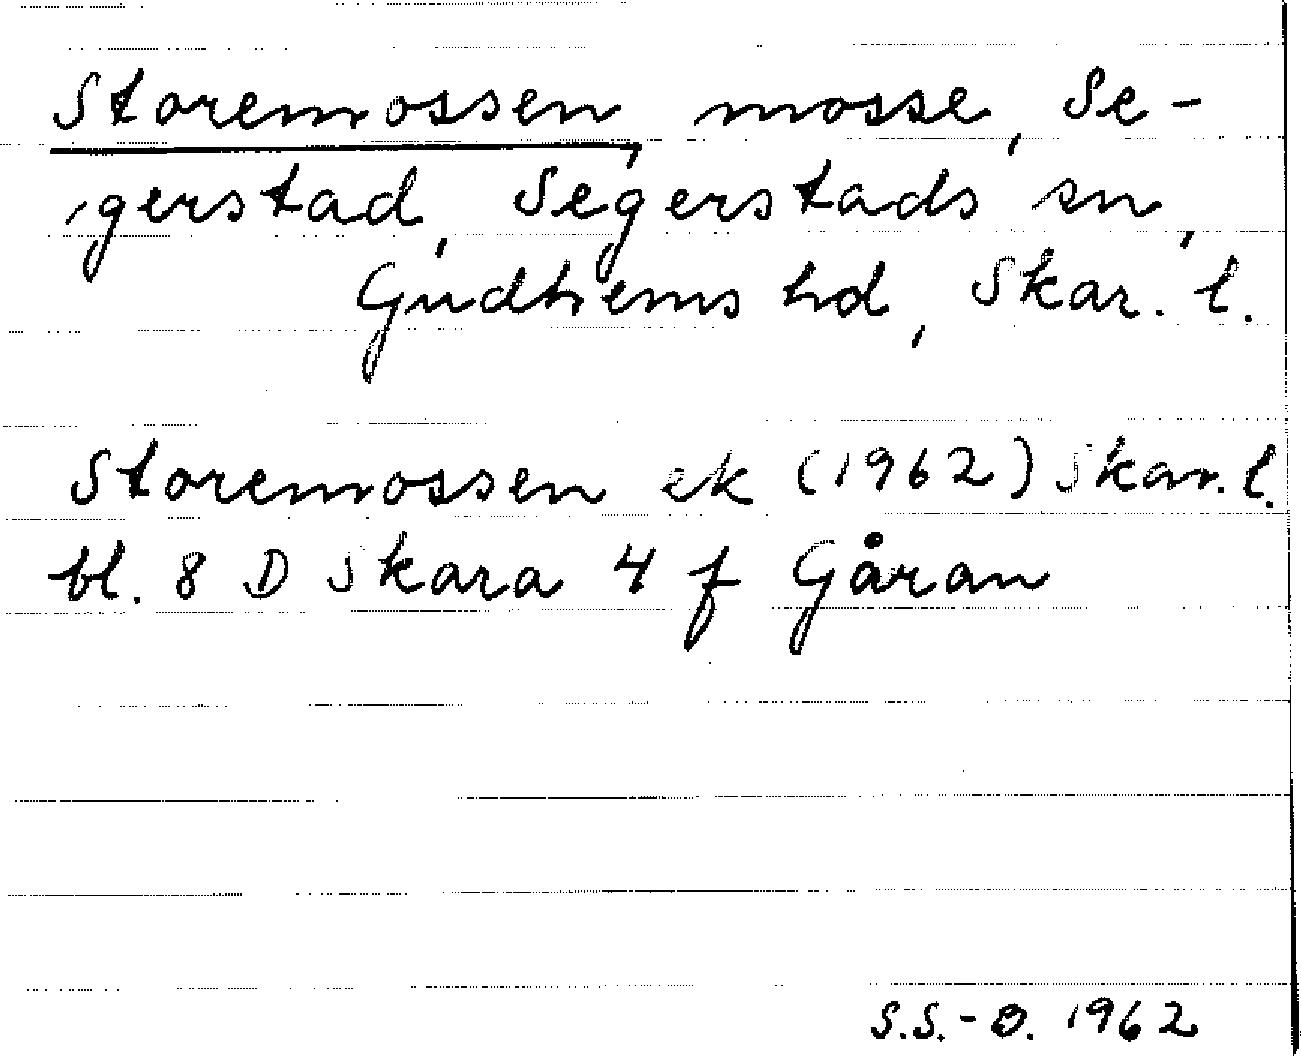 Storemossen, mosse, Se-
gerstad, Segerstads sn,
Gudhems hd, Skar. l.
Storemossen ek (1962) Skar. l.
bl. 8 D Skara 4 f Gåran
S.S.-Ö. 1962